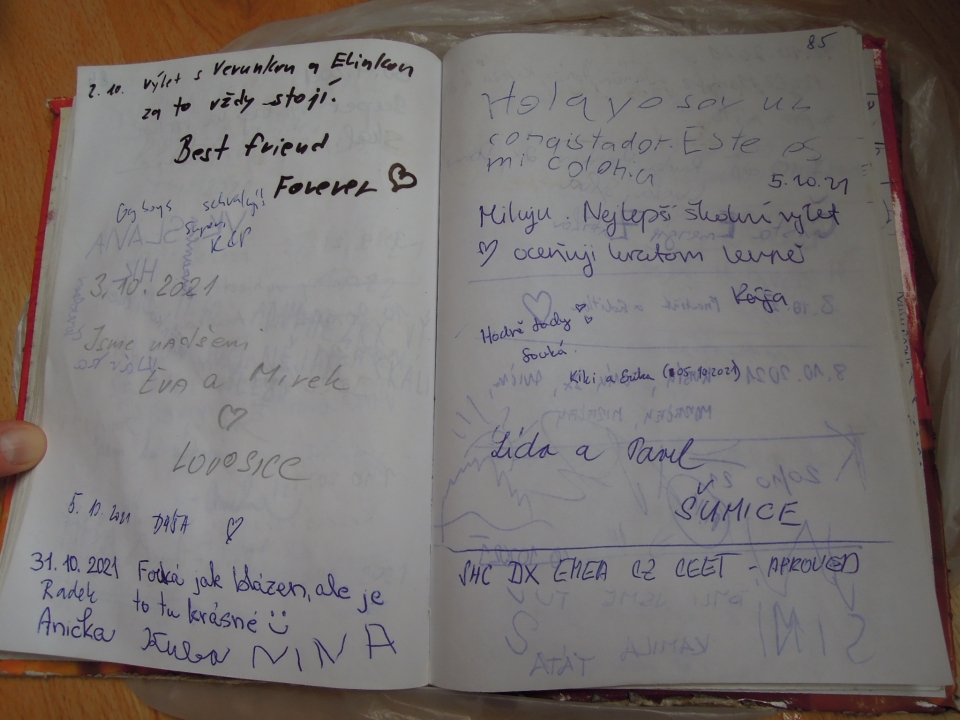 2.10. výlet s Verunkou a Elinkou
za to vždy stojí.
Best friend
Forever
schvalují!
K&P
3.10.2021
Jsme nadšeni
Eva a Mirek
Lovosice
5.10.2021 DÁŠA
31.10.2021 Fouká jak blázen, ale je
Radek to tu krásné
Anička Kuba NINA
85
Hola yo soy un
conqistador. Este es
mi colonia
5.10.21
Miluju. Nejlepší školní výlet
oceňuji kratom levně
Kejťa
Hodně tady
fouká.
Kiki a Erika (05.10.2021)
Lída a Pavel
ŠUMICE
SHC DX EMEA CZ CEET - APROVED